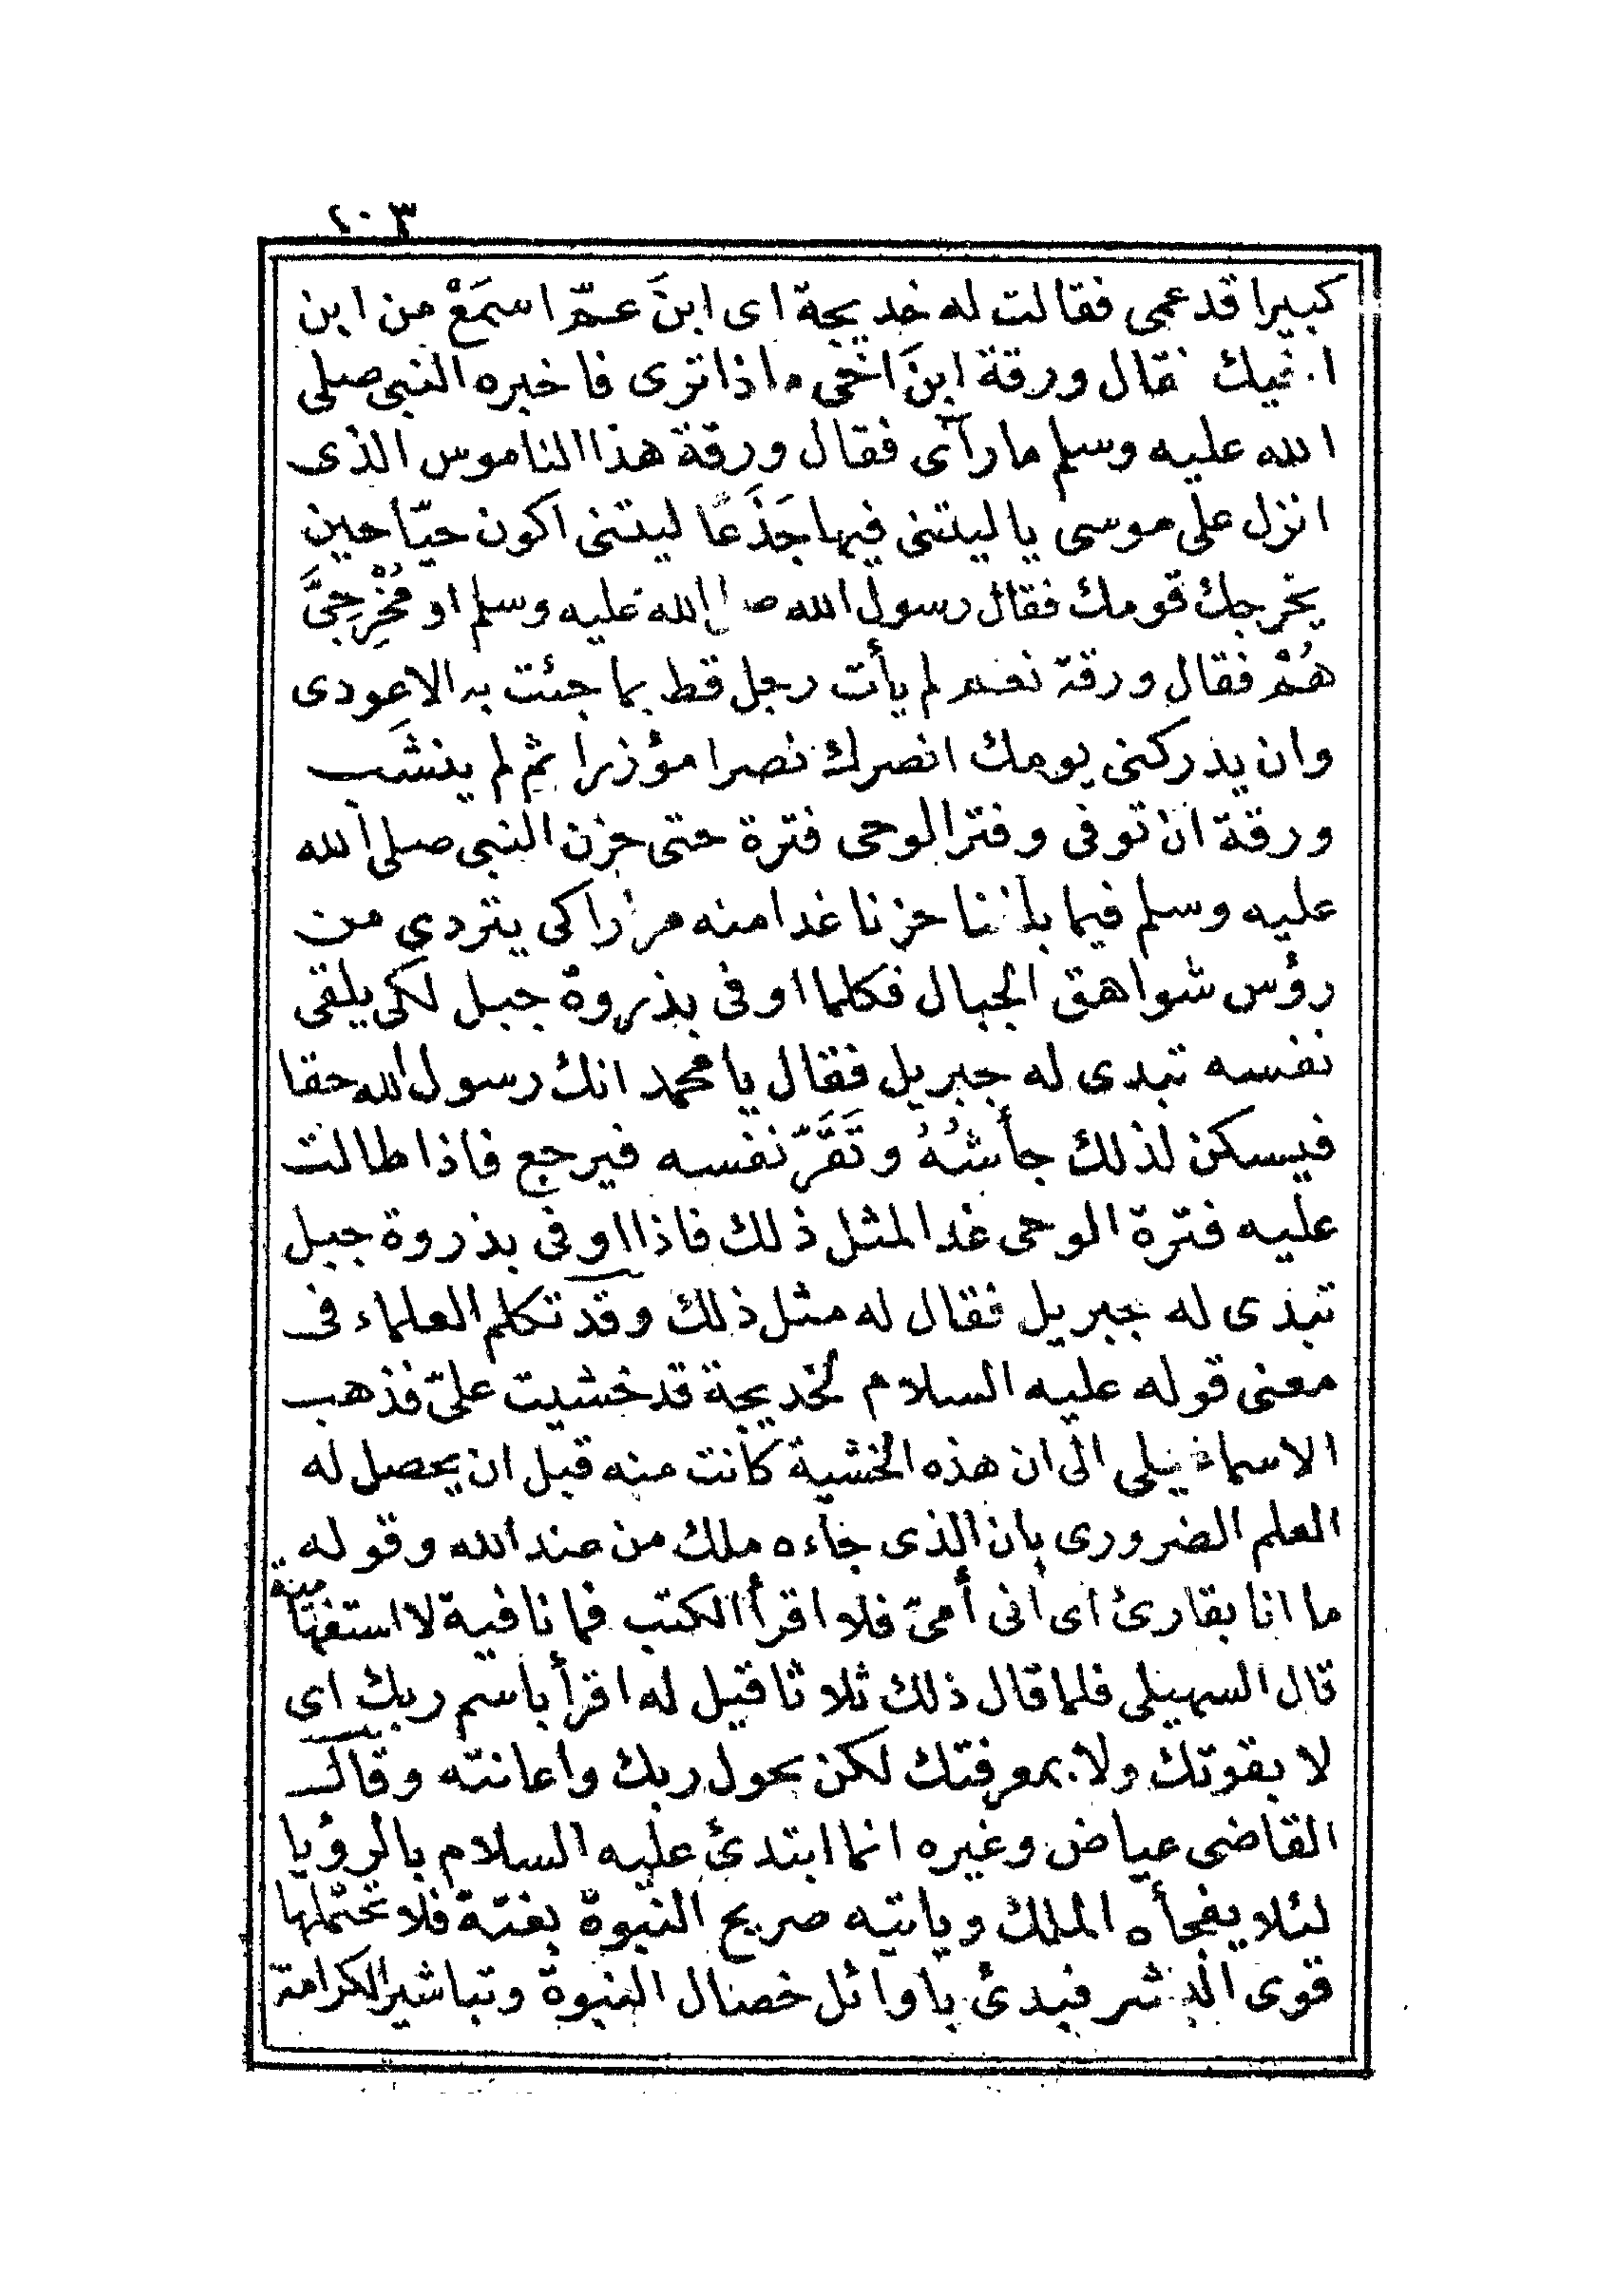 ١٠٣
كبيرا قد عمى فقالت له خديجة اى ابنَ عمّ اسمَعْ من ابن
اخيك فقال ورقة ابنَ اخى ماذا ترى فاخبره النبى صلى
الله عليه وسلم ما رآى فقال ورقة هذا الناموس الذى
انزل على موسى يا ليتنى فيها جَذَعًا ليتنى اكون حيّا حين
يخرجك قومك فقال رسول الله صلى الله عليه وسلم او مُخْرِجِىَّ
هُمْ فقال ورقة نعم لم يأت رجل قط بما جئت به الا عودى
وان يدركنى يومك انصرك نصرا مؤزرا ثم لم ينشَب
ورقة ان توفى وفتر الوحى فترة حتى حزن النبى صلى الله
عليه وسلم فيما بلغنا حزنا غدا منه مرارا كى يتردى من
رؤس شواهق الجبال فكلما اوفى بذروة جبل لكى يلقى
نفسه تبدى له جبريل فقال يا محمد انك رسول الله حقا
فيسكن لذلك جأشُهُ وتَقَرّ نفسه فيرجع فاذا طالت
عليه فترة الوحى غدا لمثل ذلك فاذا اوفى بذروة جبل
تبدى له جبريل فقال له مثل ذلك وقد تكلم العلماء فى
معنى قوله عليه السلام لخديجة قد خشيت علىّ فذهب
الاسماعيلى الى ان هذه الخشية كانت منه قبل ان يحصل له
العلم الضرورى بان الذى جاءه ملك من عند الله وقوله
ما انا بقارئ اى انى أمىّ فلا اقرأ الكتب فما نافية لا استفهامية
قال السهيلى فلما قال ذلك ثلاثا قيل له اقرأ باسم ربك اى
لا بقوتك ولا بمعرفتك لكن بحول ربك واعانته وقال
القاضى عياض وغيره انما ابتدئ عليه السلام بالرؤيا
لئلا يفجأه الملك ويأتيه صريح النبوة بغتة فلا تحتملها
قوى البشر فبدئ باوائل خصال النبوة وتباشير الكرامة